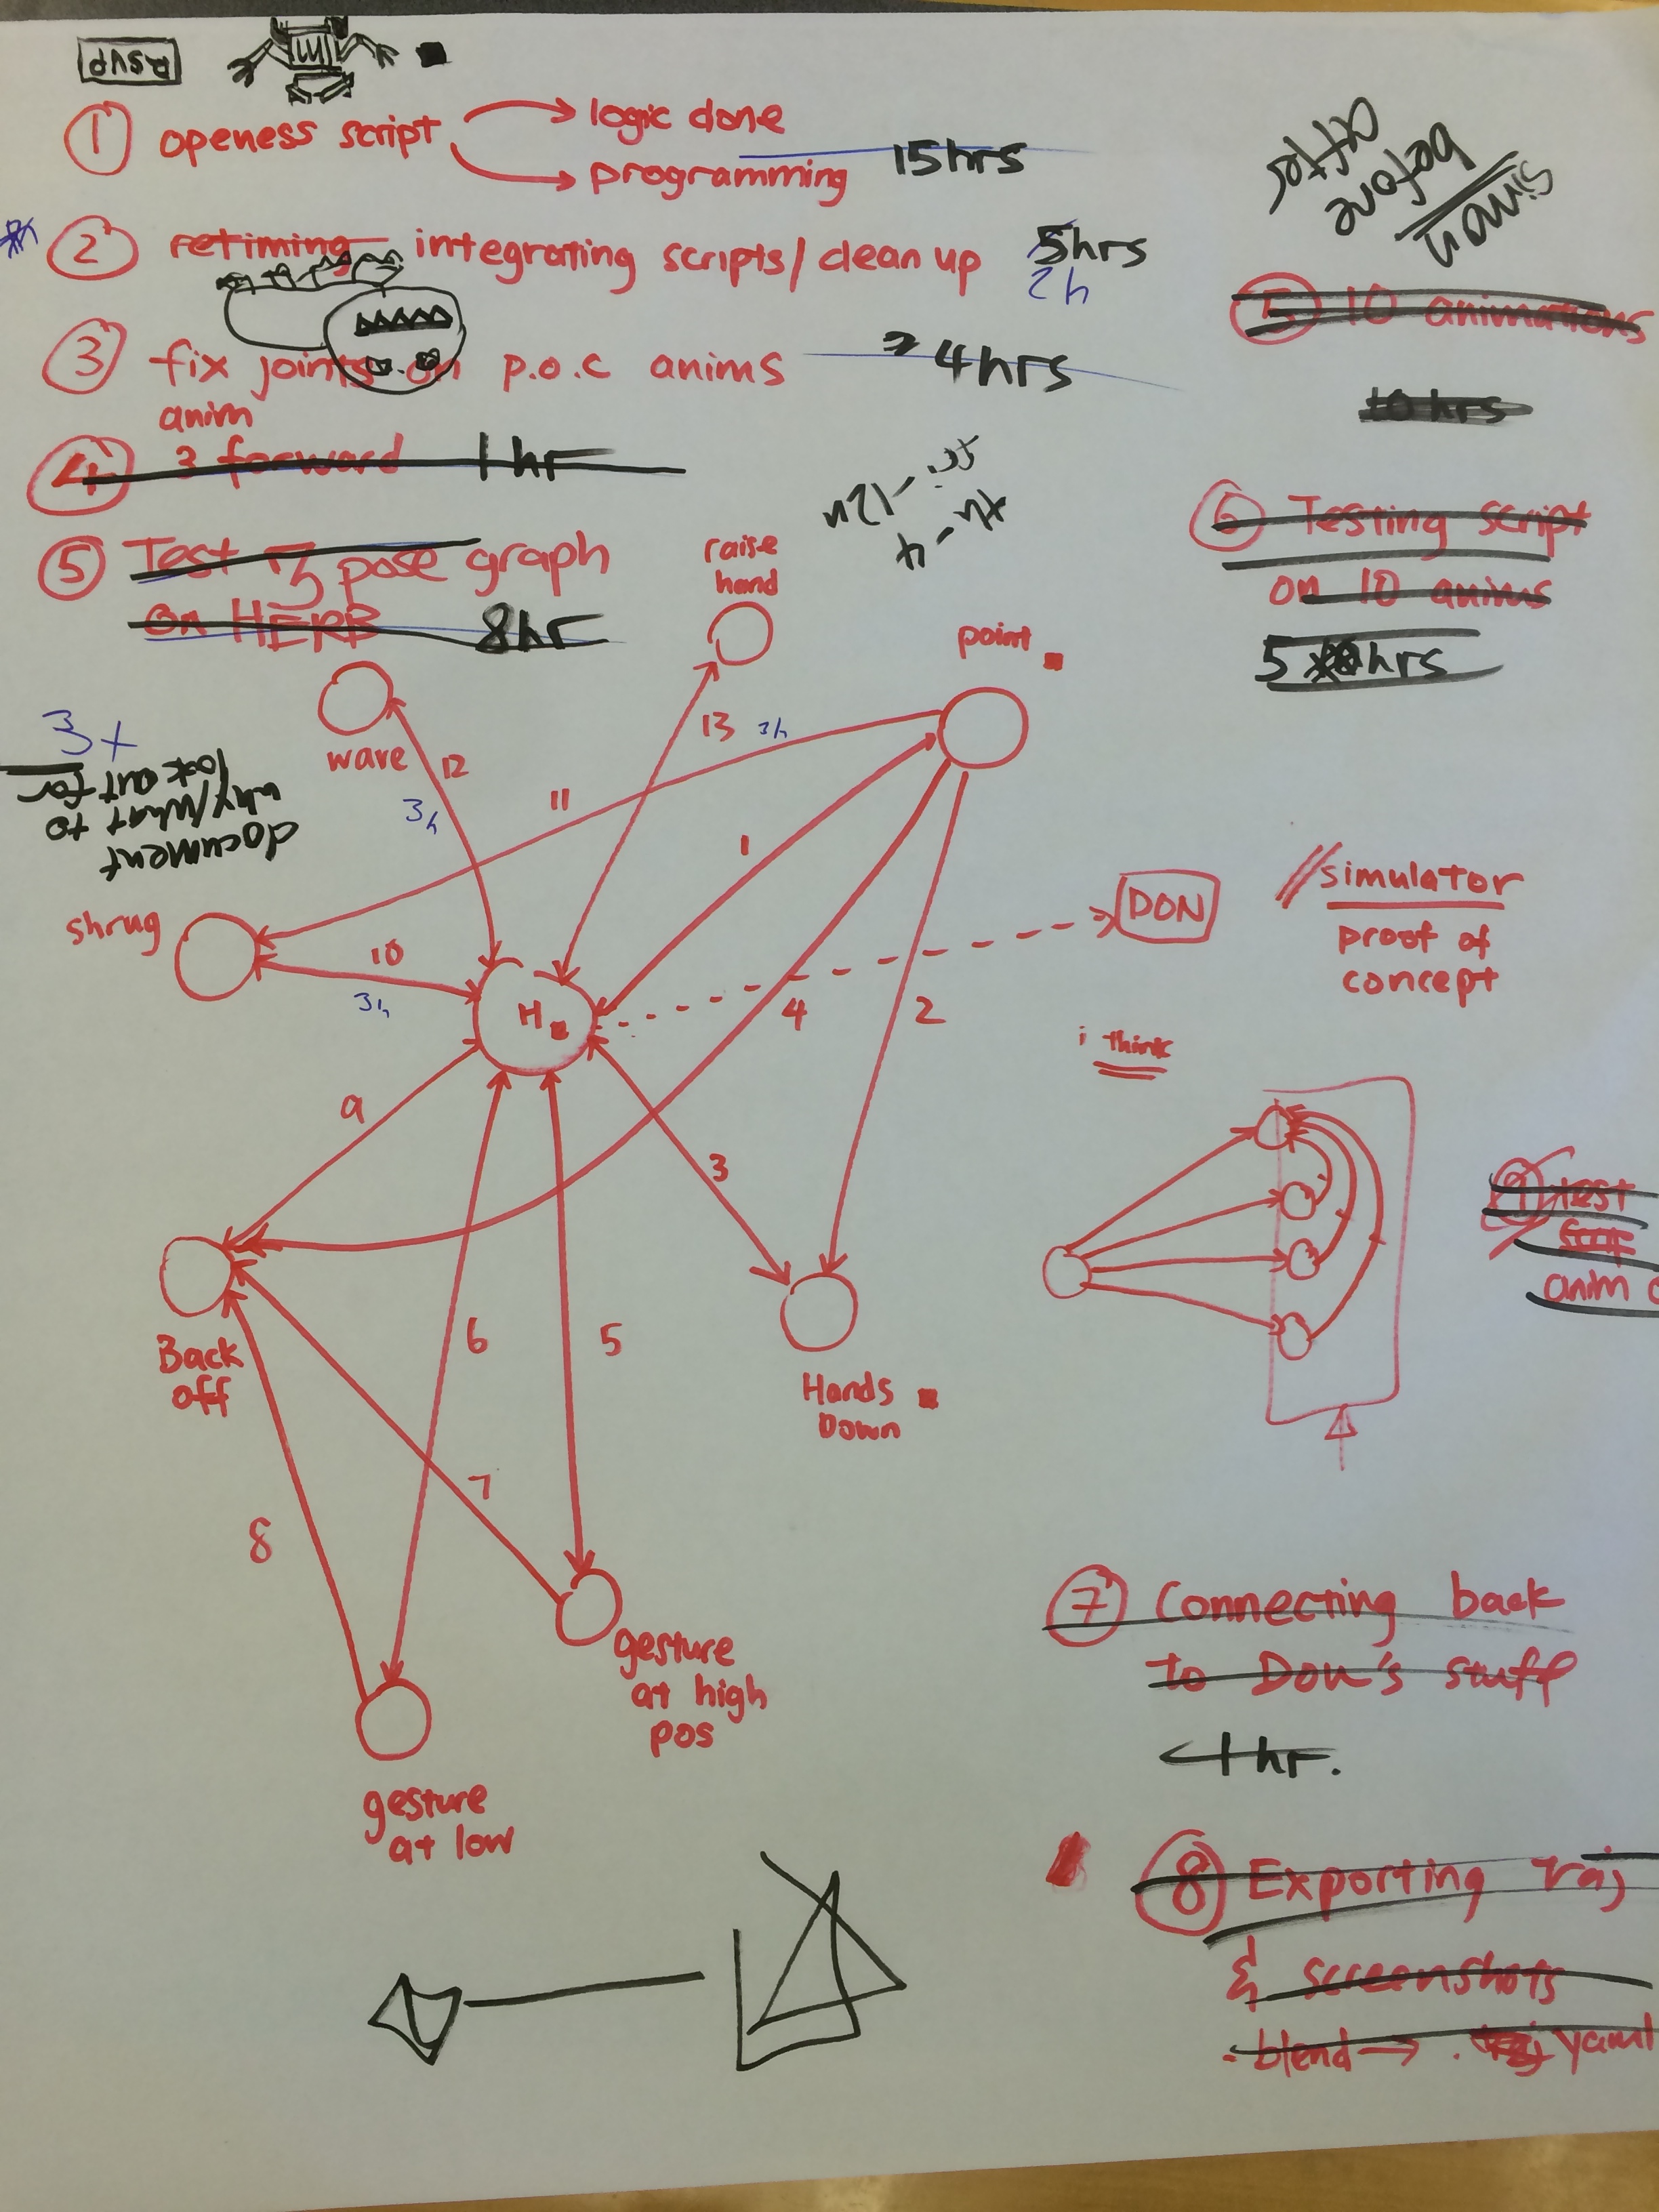 ASVP
① openess script → logic done
→ programming 15hrs
② retiming integrating scripts/clean up 5hrs
2h
③ fix joints on p.o.c anims → 4hrs
anim
④ 3 forward 1hr
⑤ Test 5 pose graph
on HERB 8hr
after
before
simon
⑤ 10 animations
10 hrs
⑥ Testing script
on 10 anims
5 hrs
3x
document
why/what to
look out for
raise
hand
point
wave
12
3h
13
3h
11
1
shrug
10
3h
H
DON
4
2
//simulator
proof of
concept
i think
9
3
6
5
Back
off
Hands
Down
7
8
gesture
at high
pos
gesture
at low
⑨ test
anim
⑦ Connecting back
to Don's stuff
1hr.
⑧ Exporting traj
& screenshots
.blend → . yaml